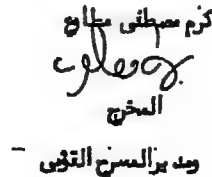 كرم مصطفى مطاوع
المخرج
ومديرالمسرح القومى -